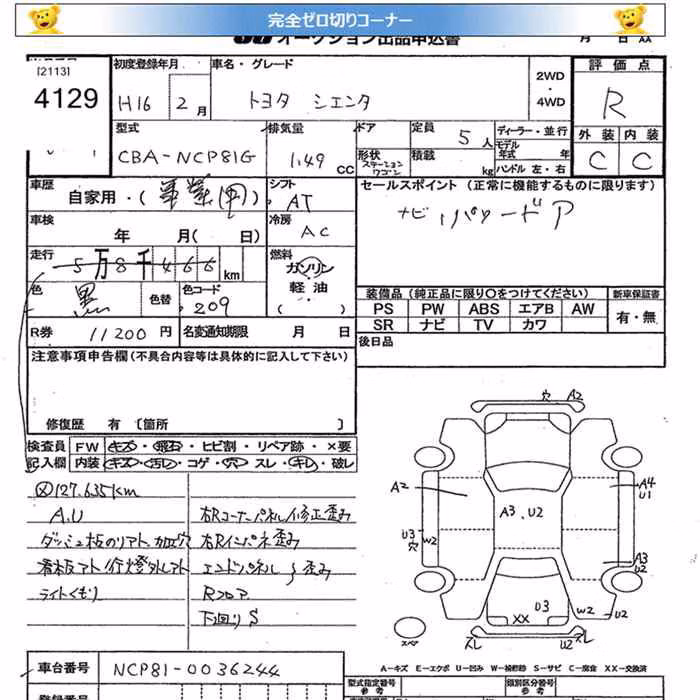 完全ゼロ切りコーナー
オークション出品申込書 月 日
[2113] 初度登録年月 車名・グレード 2WD・4WD 評価点
4129 H16 2月 トヨタ シエンタ R
型式 排気量 ドア 定員 5人 ディーラー・並行 外装 内装
CBA-NCP81G 1.49 CC 形状 ステーションワゴン 積載 kg モデル年式 年 ハンドル 左・右 C C
車歴 自家用・( ) シフト AT セールスポイント (正常に機能するものに限ります)
車検 年 月( 日) 冷房 AC ナビ パワードア
走行 5万8千466km 燃料 ガソリン・軽油 ( )
色 黒 色替 色コード 209 装備品(純正品に限り○をつけてください) 新車保証書
PS PW ABS エアB AW 有・無
R券 11200円 名変通知期限 月 日 SR ナビ TV カワ
注意事項申告欄(不具合内容等は具体的に記入して下さい) 後日品
修復歴 有 [箇所 ]
検査員 FW キズ・飛石・ヒビ割・リペア跡・×要
記入欄 内装 キズ・汚レ・コゲ・穴・スレ・キレ・破レ
127.635km
A.U 右Rコーナーパネル修正歪み
ダッシュ板のリアト、加工穴 右Rインパネ歪み
看板アト/行燈外しアト エンドパネル〜歪み
ライトくもり Rフロア
下回りS
穴 A2
A2 A4 U1
A3、U2
U3 穴 W2 A3 U2
U3 W2 U2
XX
スペ スレ U2 スレ
A−キズ E−エクボ U−凹み W−補修跡 S−サビ C−腐食 XX−交換済
車台番号 NCP81-0036244 型式指定番号 参考 類別区分番号 参考
登録番号